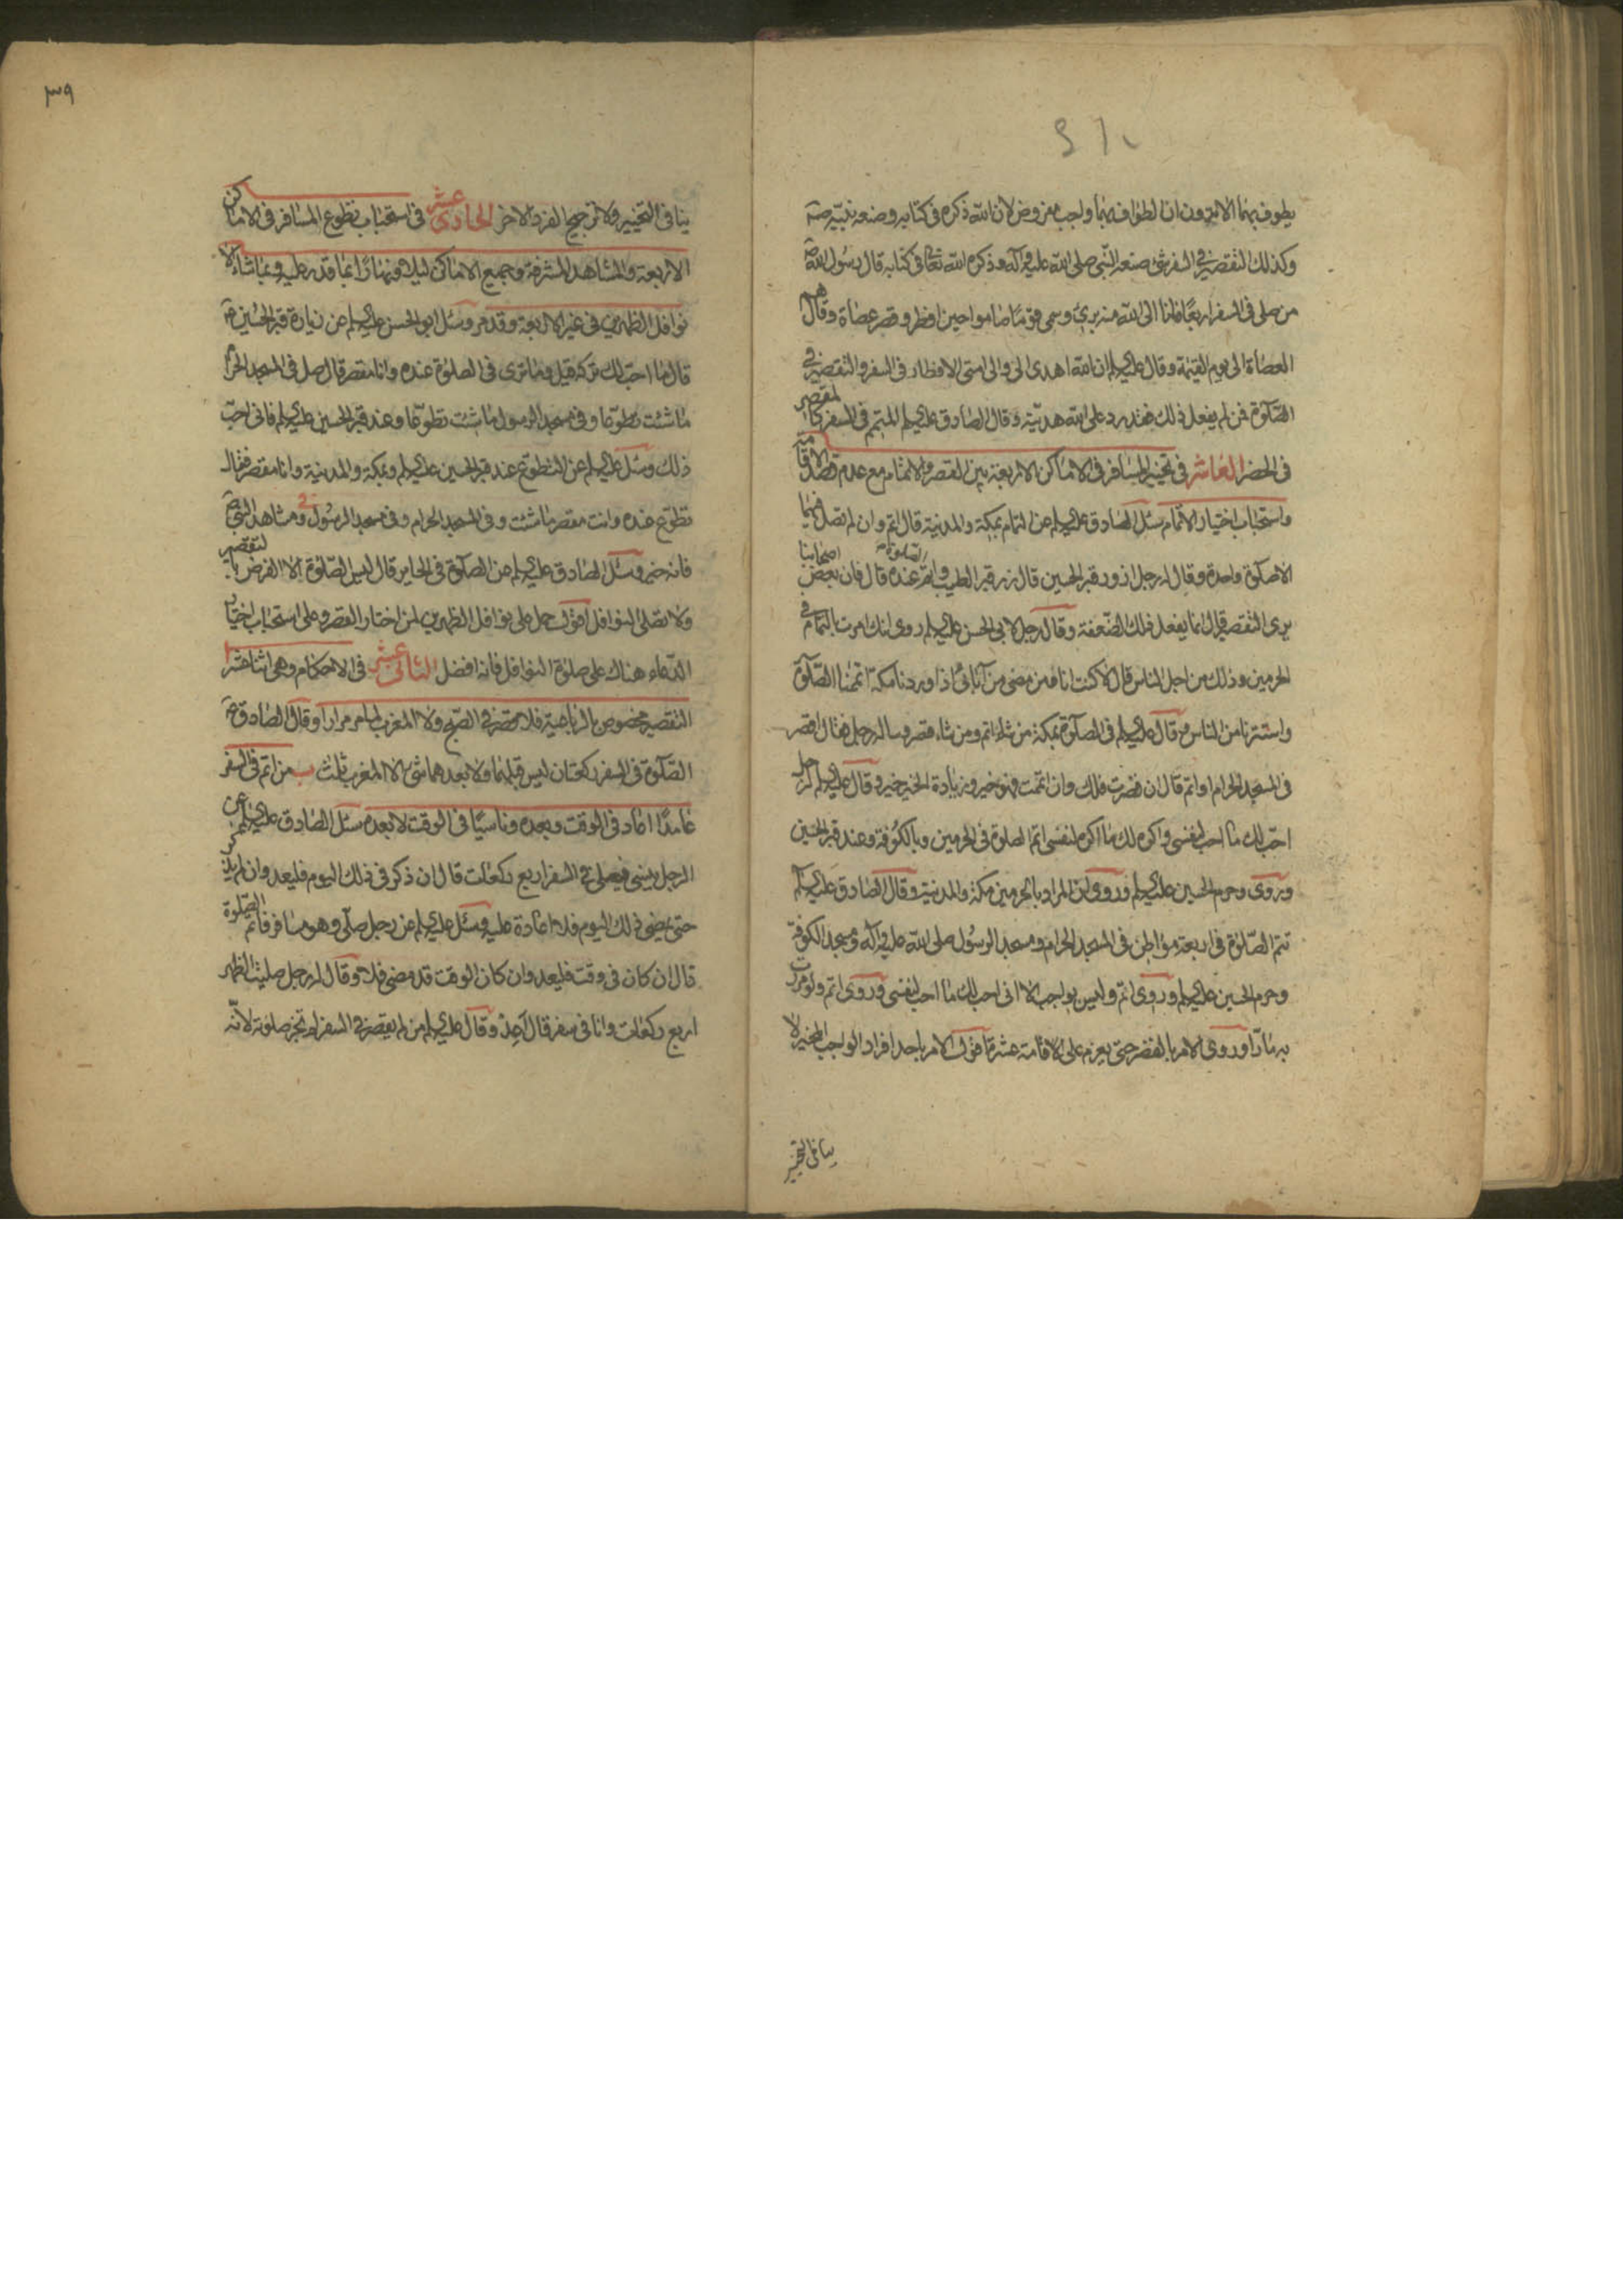 يطوف بهما الا ترون ان الطواف بهما واجب مفروض لان الله ذكره في كتابه وصنعه نبيه ص
وكذلك التقصير في السفر شئ صنعه النبي صلى الله عليه وآله وذكره الله تعالى في كتابه قال رسول الله ص
من صلى في السفر اربعا فانا الى الله منه برئ وسمى قوما صاموا حين افطر وقصر عصاة وقال هم
العصاة الى يوم القيمة وقال عليه السلم ان الله اهدى الى والى امتى الافطار في السفر والتقصير في
الصلوة فمن لم يفعل ذلك فقد رد على الله هديته وقال الصادق عليه السلم المتمم في السفر كالمقصر
في الحضر العاشر في تخيير المسافر في الاماكن الاربعة بين القصر والاتمام مع عدم قصد الاقامة
واستحباب اختيار الاتمام سئل الصادق عليه السلم عن التمام بمكة والمدينة قال اتم وان لم تصل فيهما
الا صلوة واحدة وقال له رجل ازور قبر الحسين قال زر قبر الطيب واتم الصلوة عنده قال فان بعض اصحابنا
يرى التقصير قال انما يفعل ذلك الضعفة وقال رجل لابي الحسن عليه السلم روى انك امرت بالتمام في
الحرمين وذلك من اجل الناس قال لا كنت انا ومن مضى من آبائى اذا وردنا مكة اتممنا الصلوة
واستترنا من الناس وقال عليه السلم في الصلوة بمكة من شاء اتم ومن شاء قصر وساله رجل فقال اقصر
في المسجد الحرام او اتم قال ان قصرت فلك وان اتممت فهو خير وزيادة الخير خير وقال عليه السلم لرجل
احب لك ما احب لنفسى واكره لك ما اكره لنفسى اتم الصلوة في الحرمين وبالكوفة وعند قبر الحسين
وروى وحرم الحسين عليه السلم وروى ان المراد بالحرمين مكة والمدينة وقال الصادق عليه السلم
تتم الصلوة في اربعة مواطن في المسجد الحرام ومسجد الرسول صلى الله عليه وآله ومسجد الكوفة
وحرم الحسين عليه السلم وروى اتم وليس بواجب الا انى احب لك ما احب لنفسى وروى اتم ولو مررت
به مارا وروى الامر بالقصر حتى يعزم على الاقامة عشرة اقول الامر باحد افراد الواجب المخير لا
ينافى التخيير
٣٩
ينافى التخيير ولا ترجيح الفرد الاخر الحادى عشر في استحباب تطوع المسافر في الاماكن
الاربعة والمشاهد المشرفة وجميع الاماكن ليلا ونهارا بما قدر عليه وبما شاء الا
نوافل الظهرين في غير الاربعة وقد مر وسئل ابو الحسن عليه السلم عن زيارة قبر الحسين ع
قال ما احب لك تركه قيل فما ترى في الصلوة عنده وانا مقصر قال صل في المسجد الحرام
ما شئت تطوعا وفي مسجد الرسول ما شئت تطوعا وعند قبر الحسين عليه السلم فانى احب
ذلك وسئل عليه السلم عن التطوع عند قبر الحسين عليه السلم وبمكة والمدينة وانا مقصر فقال
تطوع عنده وانت مقصر ما شئت وفي المسجد الحرام وفي مسجد الرسول وفي مشاهد النبي ص
فانه خير وسئل الصادق عليه السلم عن الصلوة في الحاير قال ليس الصلوة الا الفرض بالتقصير
ولا تصلى النوافل اقول حمل على نوافل الظهرين لمن اختار القصر وعلى استحباب اختيار
الدعاء هناك على صلوة النوافل فانه افضل الثانى عشر في الاحكام وهى اثنا عشر ا
التقصير مخصوص بالرباعية فلا تقصر في الصبح ولا المغرب لما مر مرارا وقال الصادق ع
الصلوة في السفر ركعتان ليس قبلهما ولا بعدهما شئ الا المغرب ثلث ب من اتم في السفر
عامدا اعاد في الوقت وبعده وناسيا في الوقت لا بعده سئل الصادق عليه السلم عن
الرجل ينسى فيصلى في السفر اربع ركعات قال ان ذكر في ذلك اليوم فليعد وان لم يذكر
حتى يمضى ذلك اليوم فلا اعادة عليه وسئل عليه السلم عن رجل صلى وهو مسافر فاتم الصلوة
قال ان كان في وقت فليعد وان كان الوقت قد مضى فلا وقال له رجل صليت الظهر
اربع ركعات وانا في سفر قال اعد وقال عليه السلم من لم يقصر في السفر لم تجز صلوته لانه